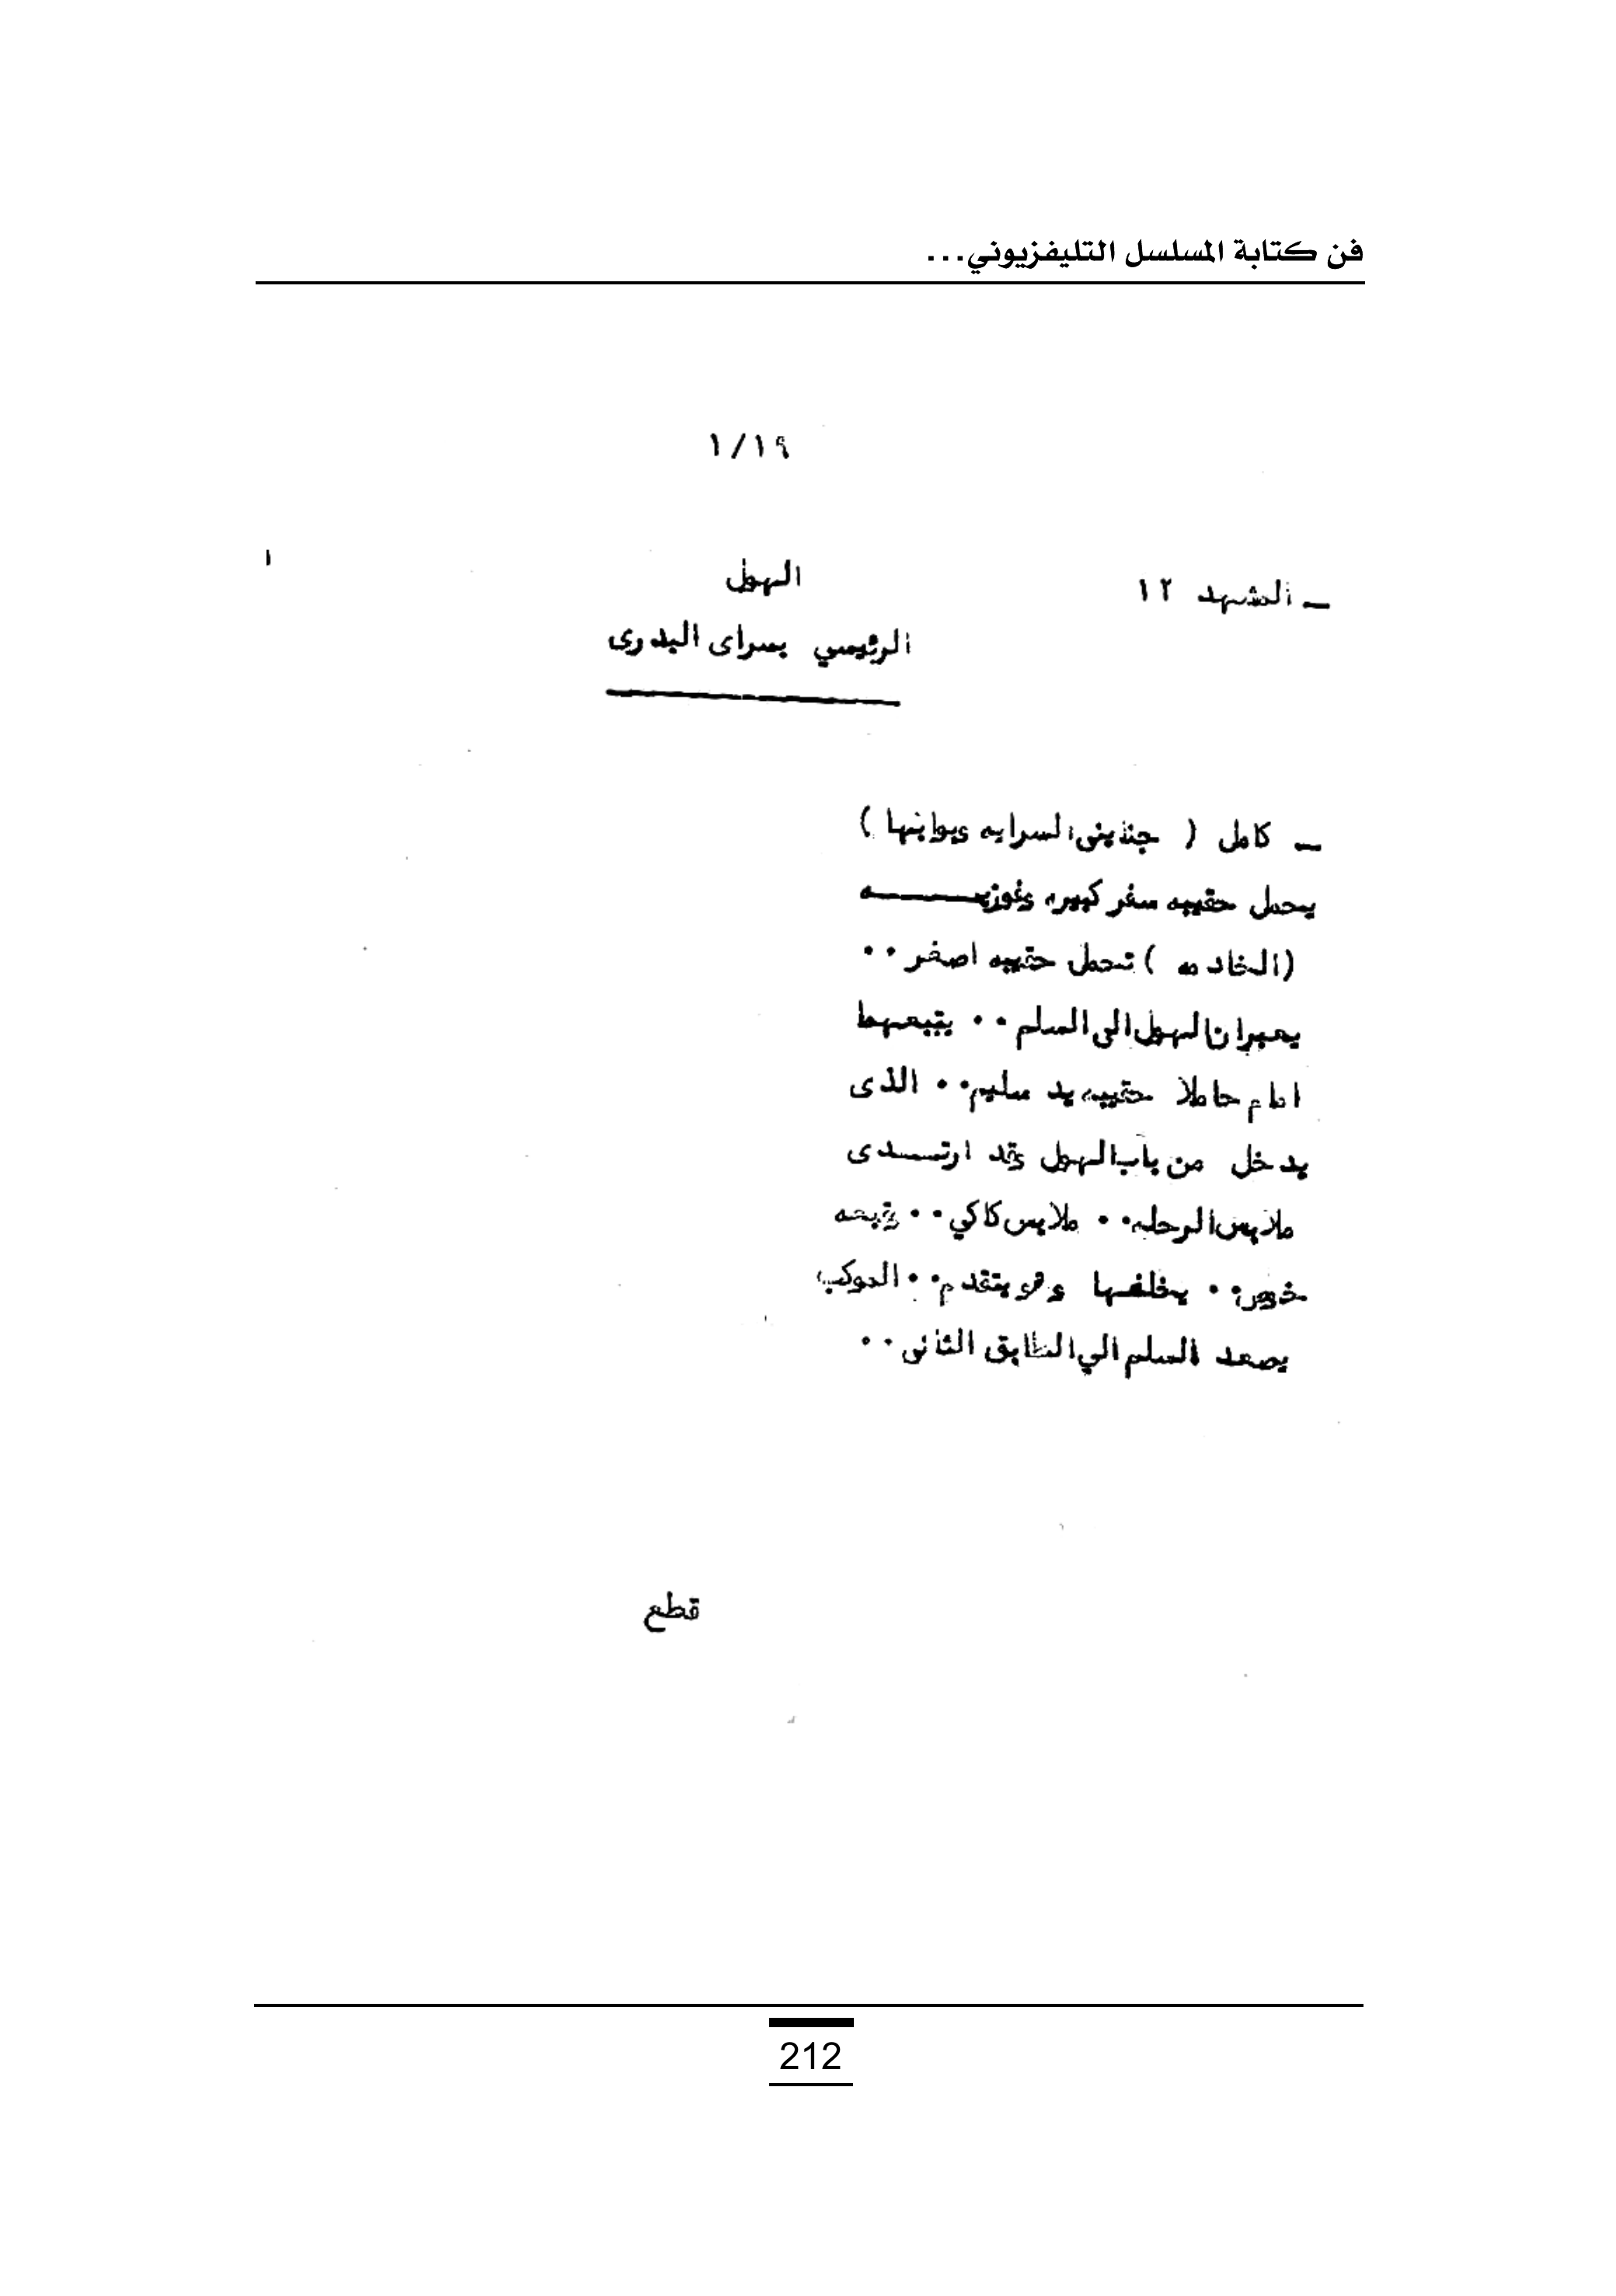 فن كتابة المسلسل التليفزيوني...
١/١٩
ـ المشهد ١٢
الهول
الرئيسي بسراى البدرى
ـ كامل ( جناينى السرايه وبوابها )
يحمل حقيبه سفر كبيره وفوزيـــــــه
(الخادمه ) تحمل حقيبه اصغر ٠٠
يعبران الهول الى السلم ٠٠ يتبعهما
امام حاملا حقيبه يد سليم ٠٠ الذى
يدخل من باب الهول وقد ارتـــدى
ملابس الرحله ٠٠ ملابس كاكي ٠٠ وتبعه
٠٠ بخلفها وهو يتقدم ٠٠ الموكب
يصعد السلم الي الطابق الثانى ٠٠
قطع
212